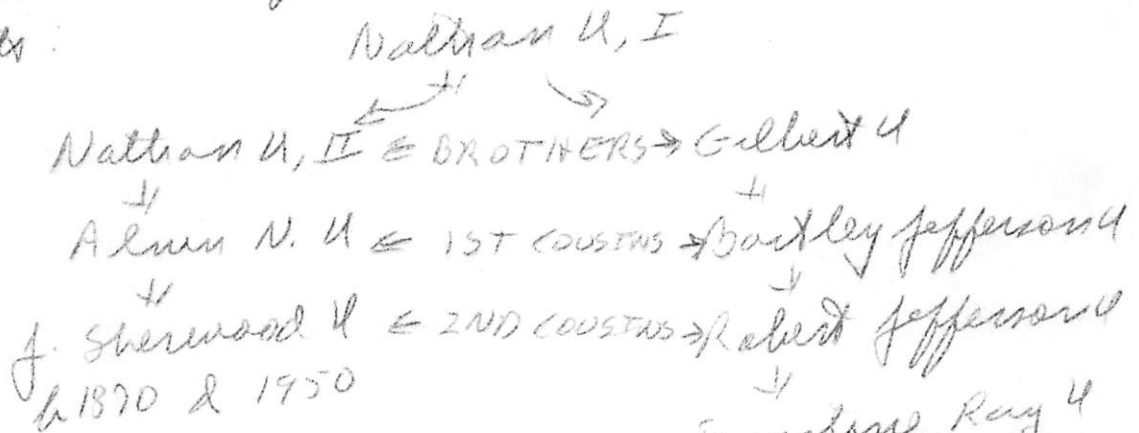 Nathan U, I
Nathan U, II ← BROTHERS → Gilbert U
Alvin N. U ← 1ST COUSINS → Bartley Jefferson U
J. Sherwood U ← 2ND COUSINS → Robert Jefferson U
b 1870 d 1950
Ray U